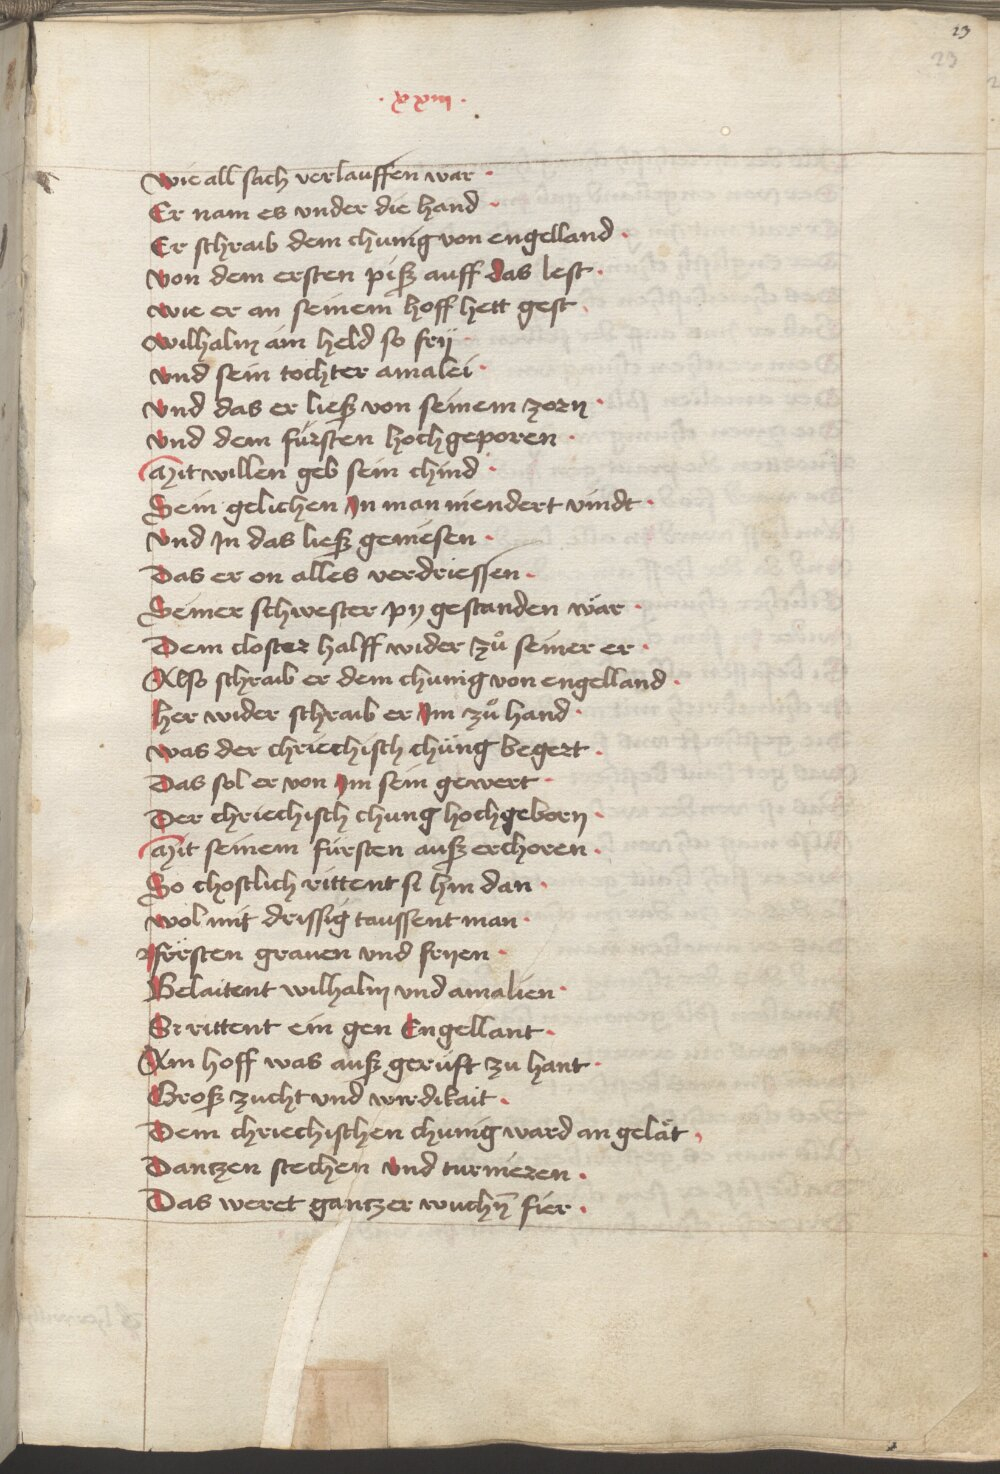 23
23
· xxiii ·
wie all sach verlauffen war ·
Er nam es vnder die hand ·
Er schraib dem chunig von engelland ·
von dem ersten piß auff das lest ·
wie er an seinem hoff hett gest ·
wilhalm ain held so frÿ
vnd sein tochter amalei ·
vnd das er ließ von seinem zorn ·
vnd dem fürsten hochgeporen ·
Mit willen geb sein chind ·
Sein gelichen In man niendert vindt ·
vnd In das ließ geniesen ·
Das er on alles verdriessen ·
Seiner schwester pÿ gestanden wär ·
Dem closter halff wider zuͦ seiner er ·
Also schraib er dem chunig von engelland ·
her wider schraib er Im zuͦ hand ·
was der chriechisch chüng begert ·
Das sol er von Im sein gewert ·
Der chriechisch chung hochgeborn ·
Mit seinem fürsten auß erchoren ·
So chostlich rittent si hin dan ·
wol mit drissig taussent man ·
fürsten grauen vnd frÿen ·
Belaitent wilhalm vnd amalien ·
Si rittent ein gen Engellant ·
Am hoff was auß gerüft zu hant ·
Groß zucht vnd wirdikait ·
Dem chriechischen chunig ward an gelät ·
Dantzen stechen vnd turnieren ·
Das weret gantzer wuchn̄ fier ·